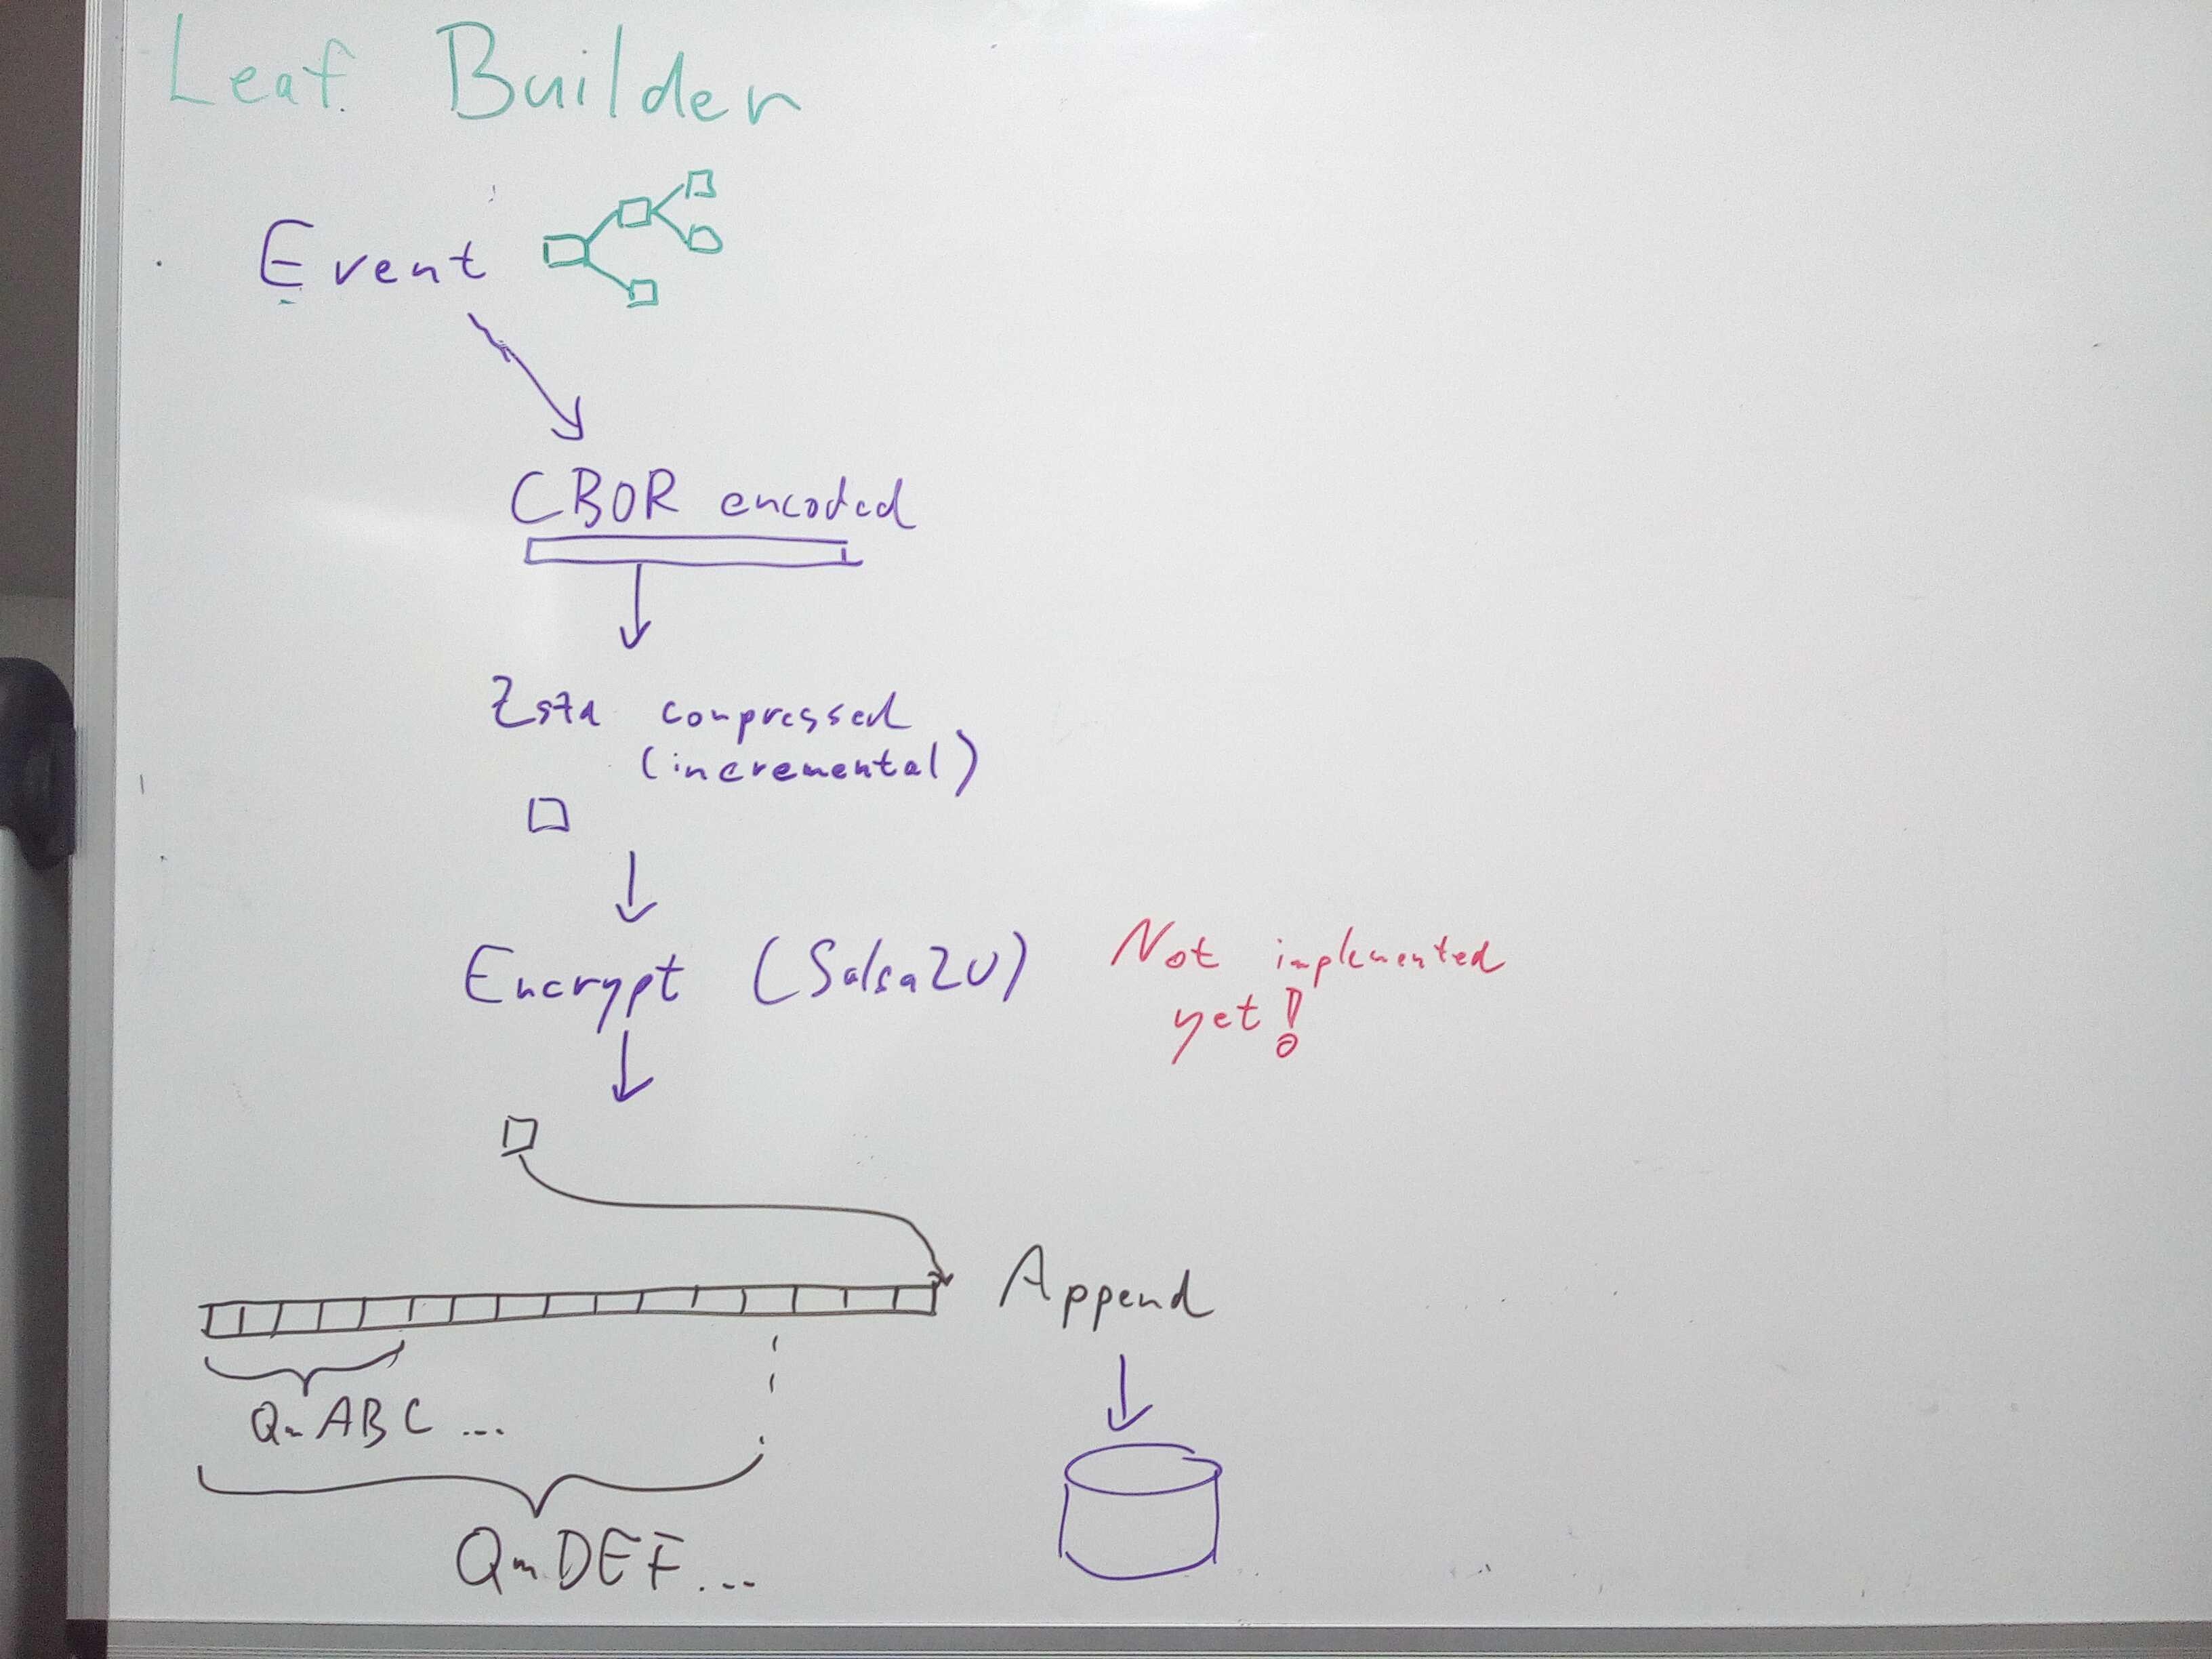 Leaf Builder
Event
CBOR encoded
Zstd compressed
(incremental)
Encrypt (Salsa20)
Not implemented
yet!
Append
QmABC ...
QmDEF...